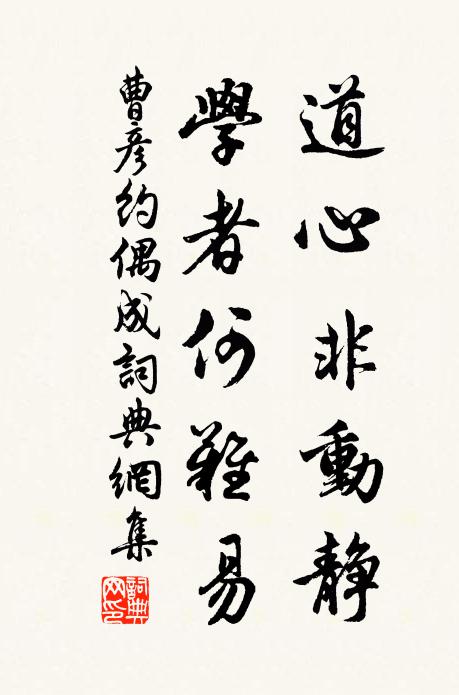 道心非動靜
學者何難易
曹彥約偶成詞典網集
詞典網印